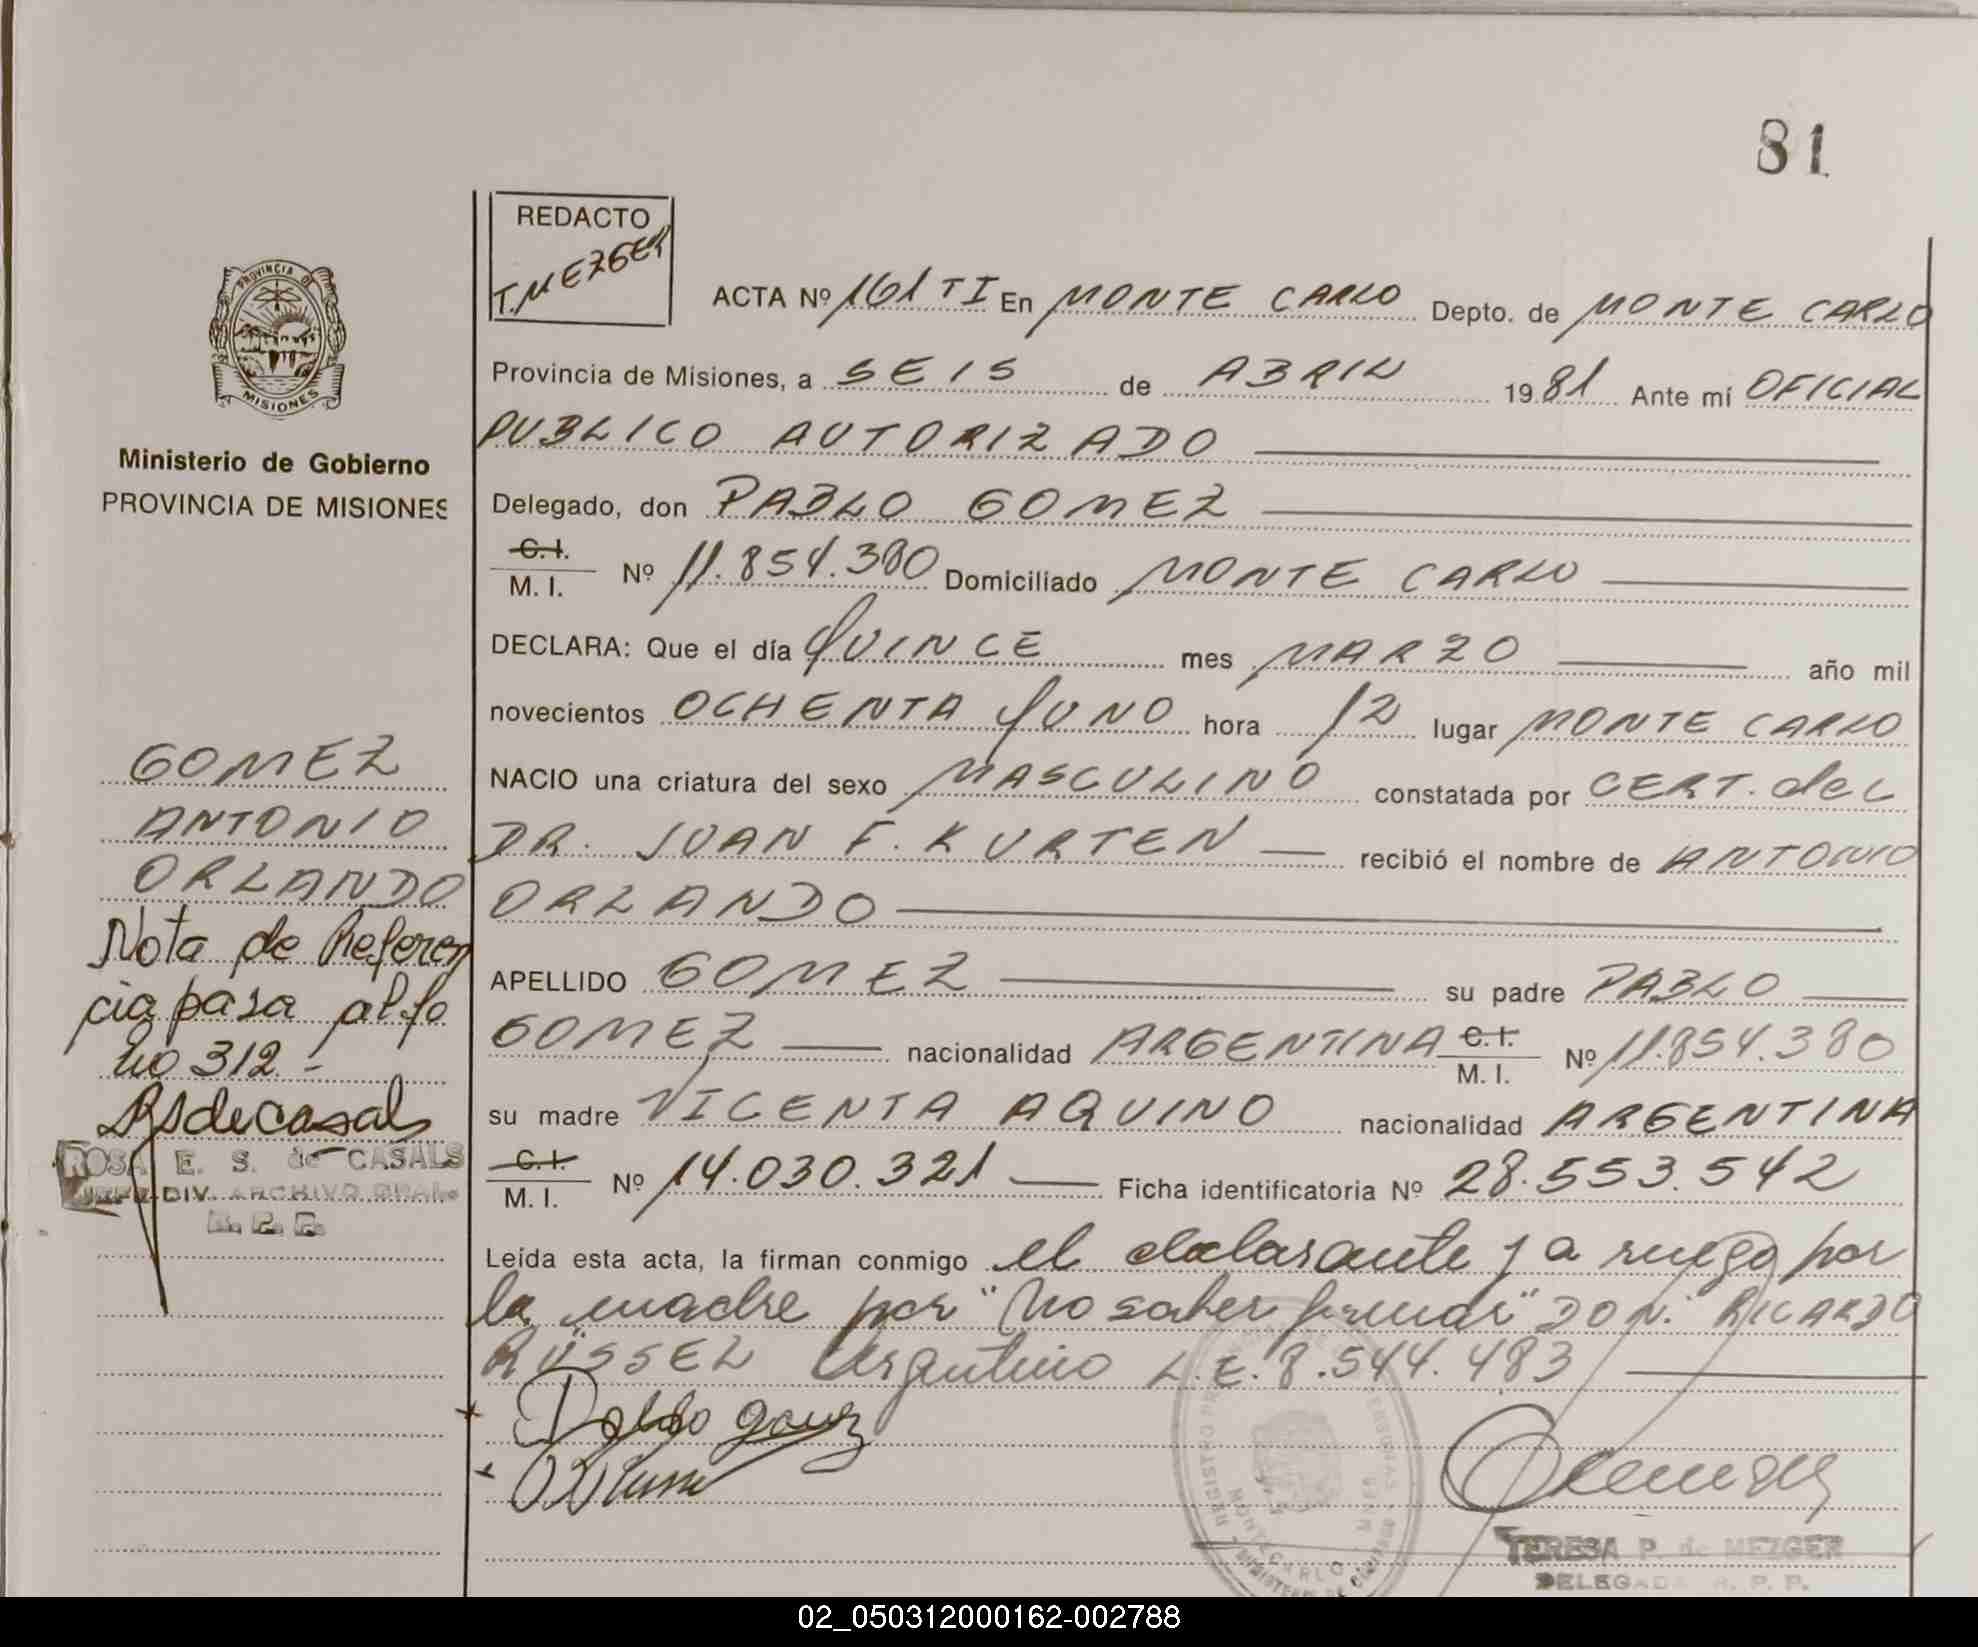 81
REDACTO
T. MEZGER
ACTA Nº 161 TI En MONTE CARLO Depto. de MONTE CARLO
Provincia de Misiones, a SEIS de ABRIL 1981 Ante mí OFICIAL
PUBLICO AUTORIZADO
Delegado, don PABLO GOMEZ
C.I. M. I. Nº 11.854.380 Domiciliado MONTE CARLO
DECLARA: Que el día QUINCE mes MARZO año mil
novecientos OCHENTA YUNO hora 12 lugar MONTE CARLO
NACIO una criatura del sexo MASCULINO constatada por CERT. del
DR. JUAN F. KURTEN recibió el nombre de ANTONIO
ORLANDO
APELLIDO GOMEZ su padre PABLO
GOMEZ nacionalidad ARGENTINA C.I. M. I. Nº 11.854.380
su madre VICENTA AQUINO nacionalidad ARGENTINA
C.I. M. I. Nº 14.030.321 Ficha identificatoria Nº 28.553.542
Leída esta acta, la firman conmigo el declarante y a ruego por
la madre por "No saber firmar" DON. RICARDO
RÜSSEL Argentino L.E. 8.544.483
Pablo gomez
TERESA P. de MEZGER
DELEGADA R. P. P.
PROVINCIA DE
MISIONES
Ministerio de Gobierno
PROVINCIA DE MISIONES
GOMEZ
ANTONIO
ORLANDO
Nota de Referen
cia pasa al fo
lio 312 -
RSdecasals
ROSA E. S. de CASALS
JEFE DIV. ARCHIVO GRAL.
R. P. P.
MONTECARLO
02_050312000162-002788